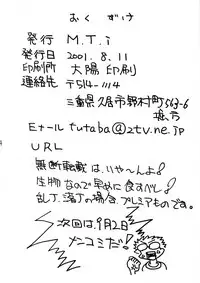 おくづけ
発行 M.T.i
発行日 2001.8.11
印刷所 太陽印刷
連絡先 〒514-1114
三重県久居市野村町563-6
堀方
Eメール tutaba@ztv.ne.jp
URL
無断転載は、いや〜んよ!
生物なので早めに食すべし!
乱丁、落丁の場合、プレミアものです。
次回は、9月2日
メンコミだ!